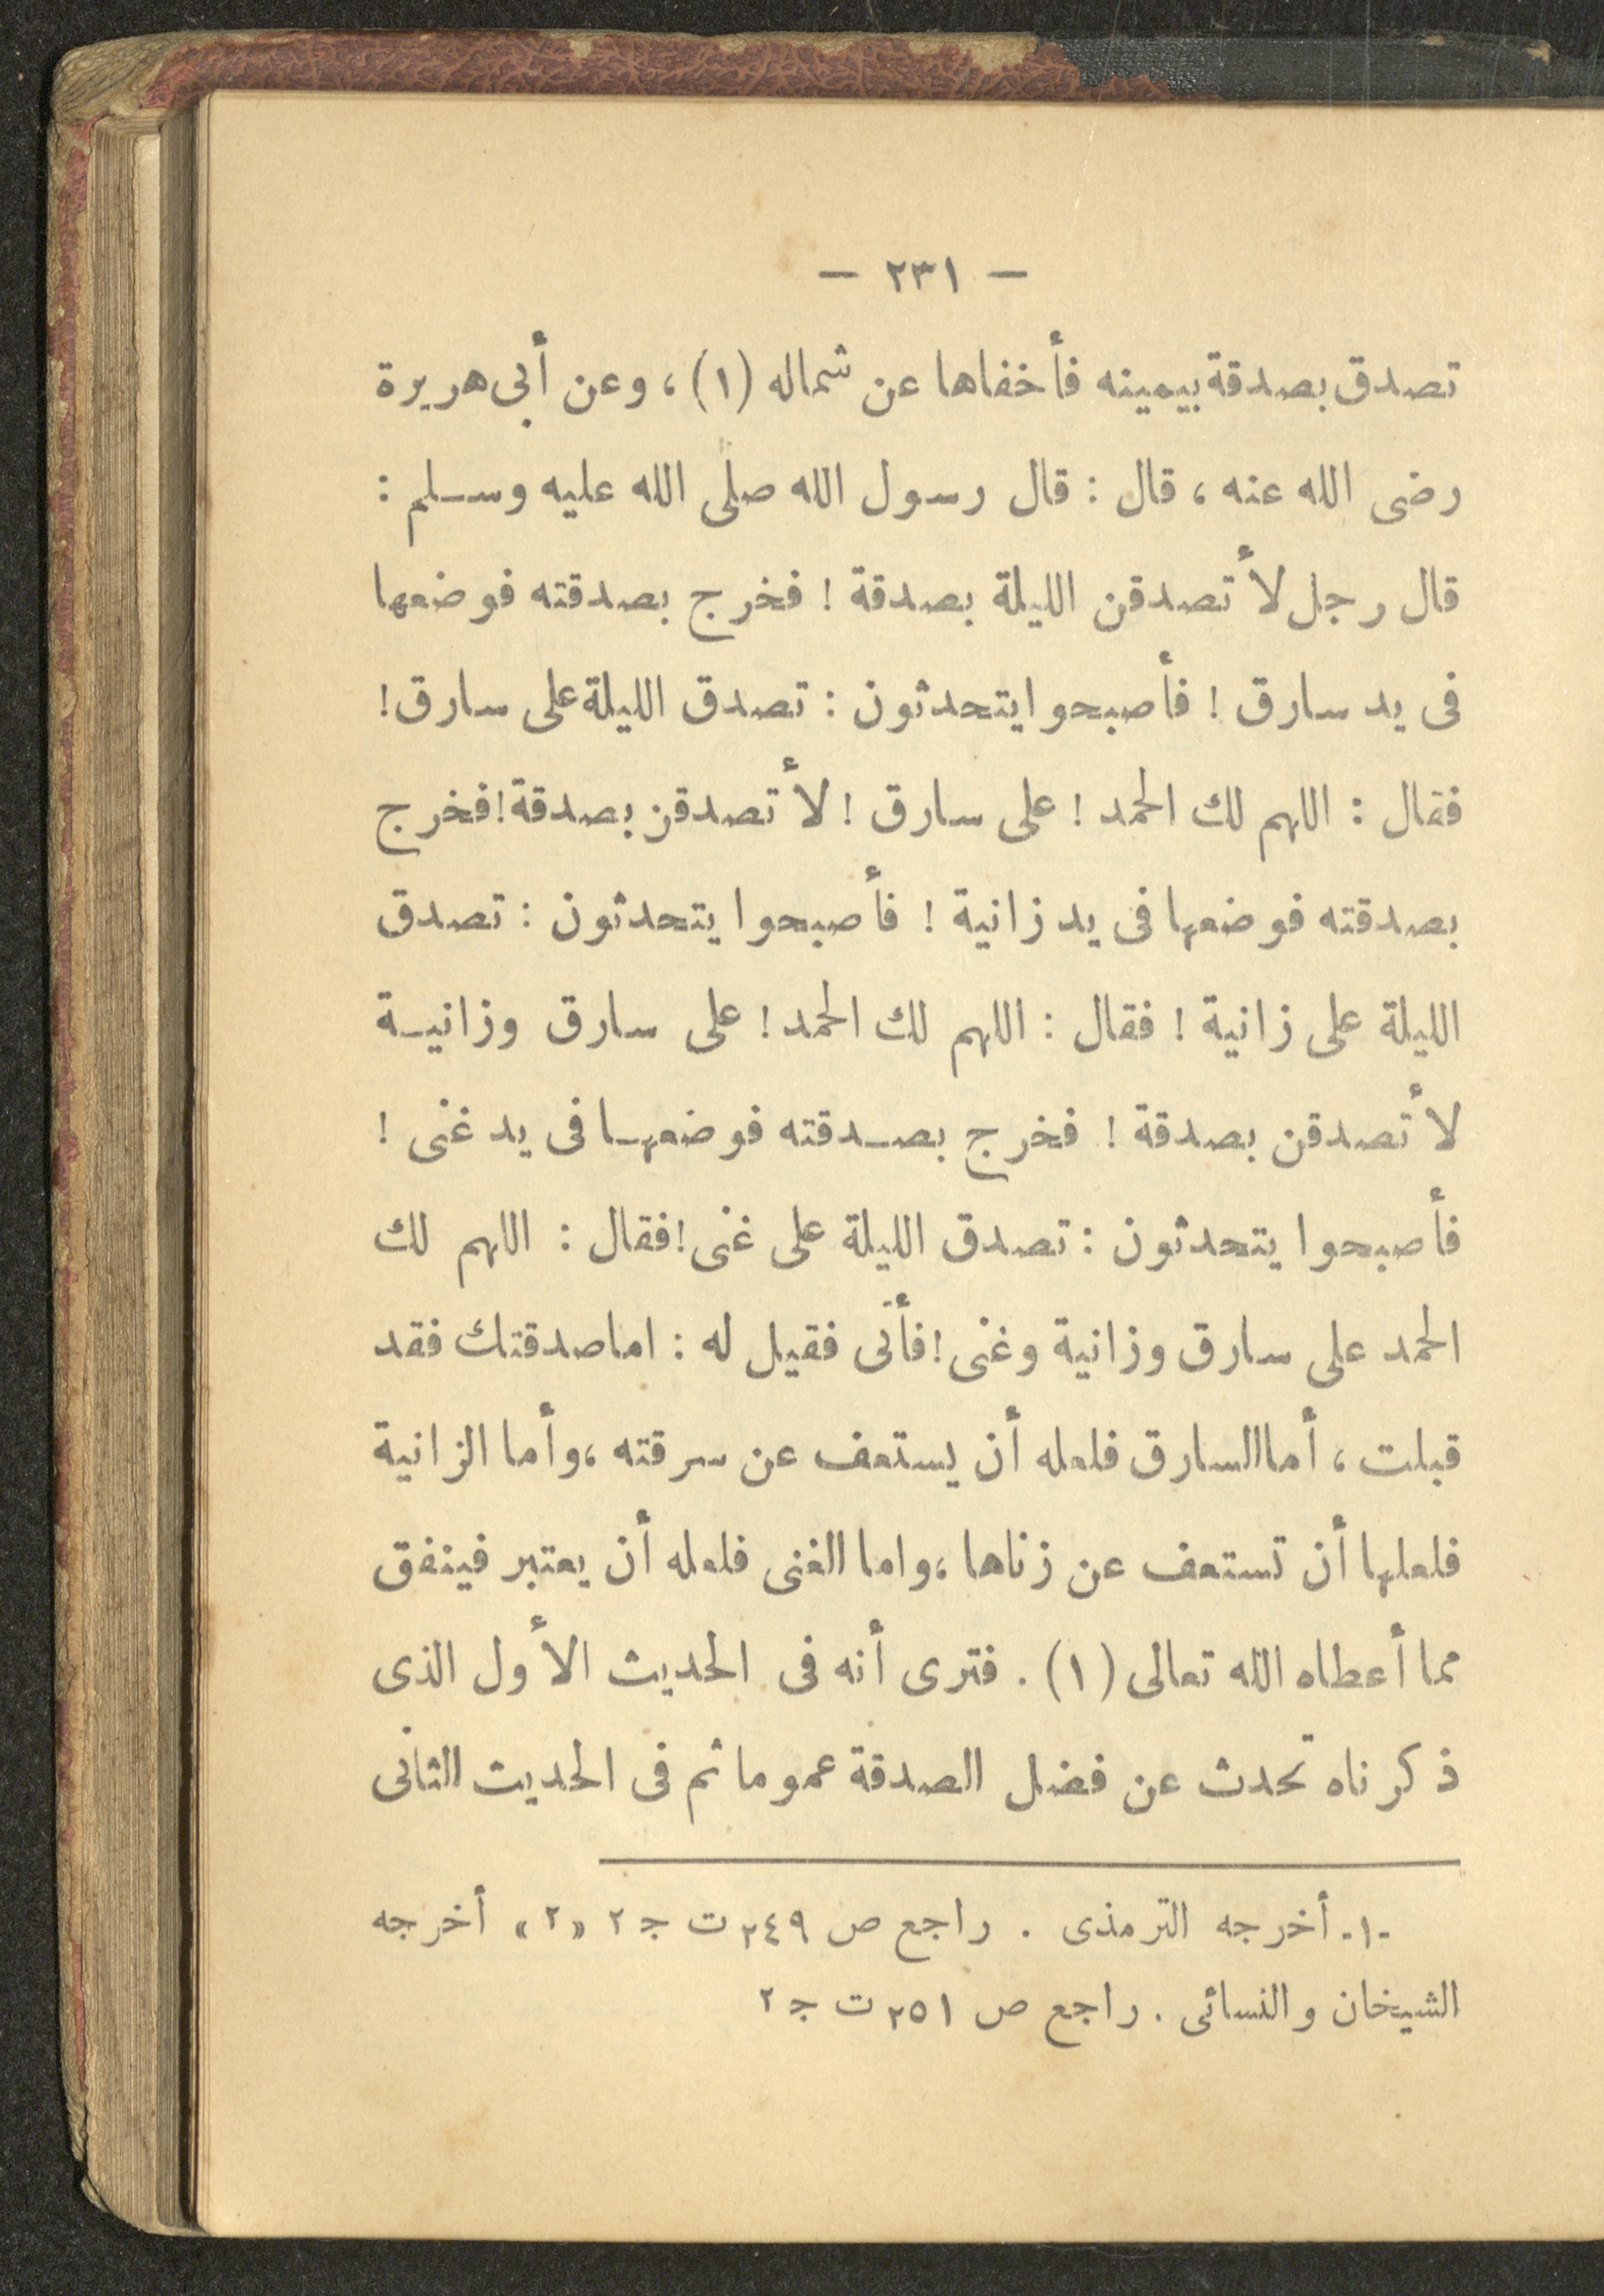 — ٢٣١ —
تصدق بصدقة بيمينه فأخفاها عن شماله (١) ، وعن أبى هريرة
رضى الله عنه ، قال : قال رسول الله صلى الله عليه وسلم :
قال رجل لأتصدقن الليلة بصدقة ! فخرج بصدقته فوضعها
فى يد سارق ! فأصبحوا يتحدثون : تصدق الليلة على سارق !
فقال : اللهم لك الحمد ! على سارق ! لأتصدقن بصدقة ! فخرج
بصدقته فوضعها فى يد زانية ! فأصبحوا يتحدثون : تصدق
الليلة على زانية ! فقال : اللهم لك الحمد ! على سارق وزانية
لأتصدقن بصدقة ! فخرج بصدقته فوضعها فى يد غنى !
فأصبحوا يتحدثون : تصدق الليلة على غنى ! فقال : اللهم لك
الحمد على سارق وزانية وغنى ! فأتى فقيل له : اما صدقتك فقد
قبلت ، أما السارق فلعله أن يستعف عن سرقته ، وأما الزانية
فلعلها أن تستعف عن زناها ، واما الغنى فلعله أن يعتبر فينفق
مما أعطاه الله تعالى (١) . فترى أنه فى الحديث الأول الذى
ذكرناه تحدث عن فضل الصدقة عموما ثم فى الحديث الثانى
-١- أخرجه الترمذى . راجع ص ٢٤٩ ت جـ ٢ «٢» أخرجه
الشيخان والنسائى . راجع ص ٢٥١ ت جـ ٢